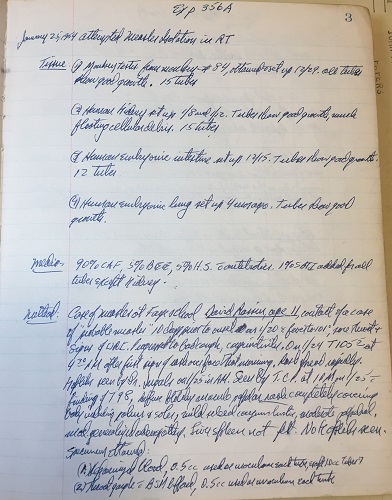 Exp 356A
3
January 25, 1954 attempted measles isolation in RT
Tissue (1) Monkey testis from monkey # 84, obtained set up 12/29. all tubes
show good growth. 15 tubes
(2) Human Kidney set up 1/8 and 1/2. Tubes show good growth, much
floating cellular debris. 15 tubes
(3) Human embryonic intestine set up 12/15. Tubes show good growth.
12 tubes
(4) Human Embryonic lung set up 4 weeks ago. Tubes show good
growth.
Media 90% BAF, 5% BEE, 5% H.S. antibiotics. 1% SBTI added for all
tubes except kidney.
Case of measles at Fay school David age 11, contact of a case
of "probable measles" 10 days prior to onset on 1/20 fever to 101° sore throat
signs of URI. Progressed to bad cough, conjunctivitis. On 1/24 T 105° at
4 PM after first sign of rash on face that morning. Rash spread rapidly.
seen by Dr. on 1/25 in AM. Seen by T.C.P. at 1 PM on 1/25
finding of T 98, diffuse macular papular rash completely covering
body including palms & soles, mild conjunctivitis, moderate
generalized adenopathy. Spleen not felt. No Koplik's seen.
Specimens obtained:
(1) blood, 0.5cc used as inoculum each tube
(2) Throat 0.5cc used as inoculum each tube